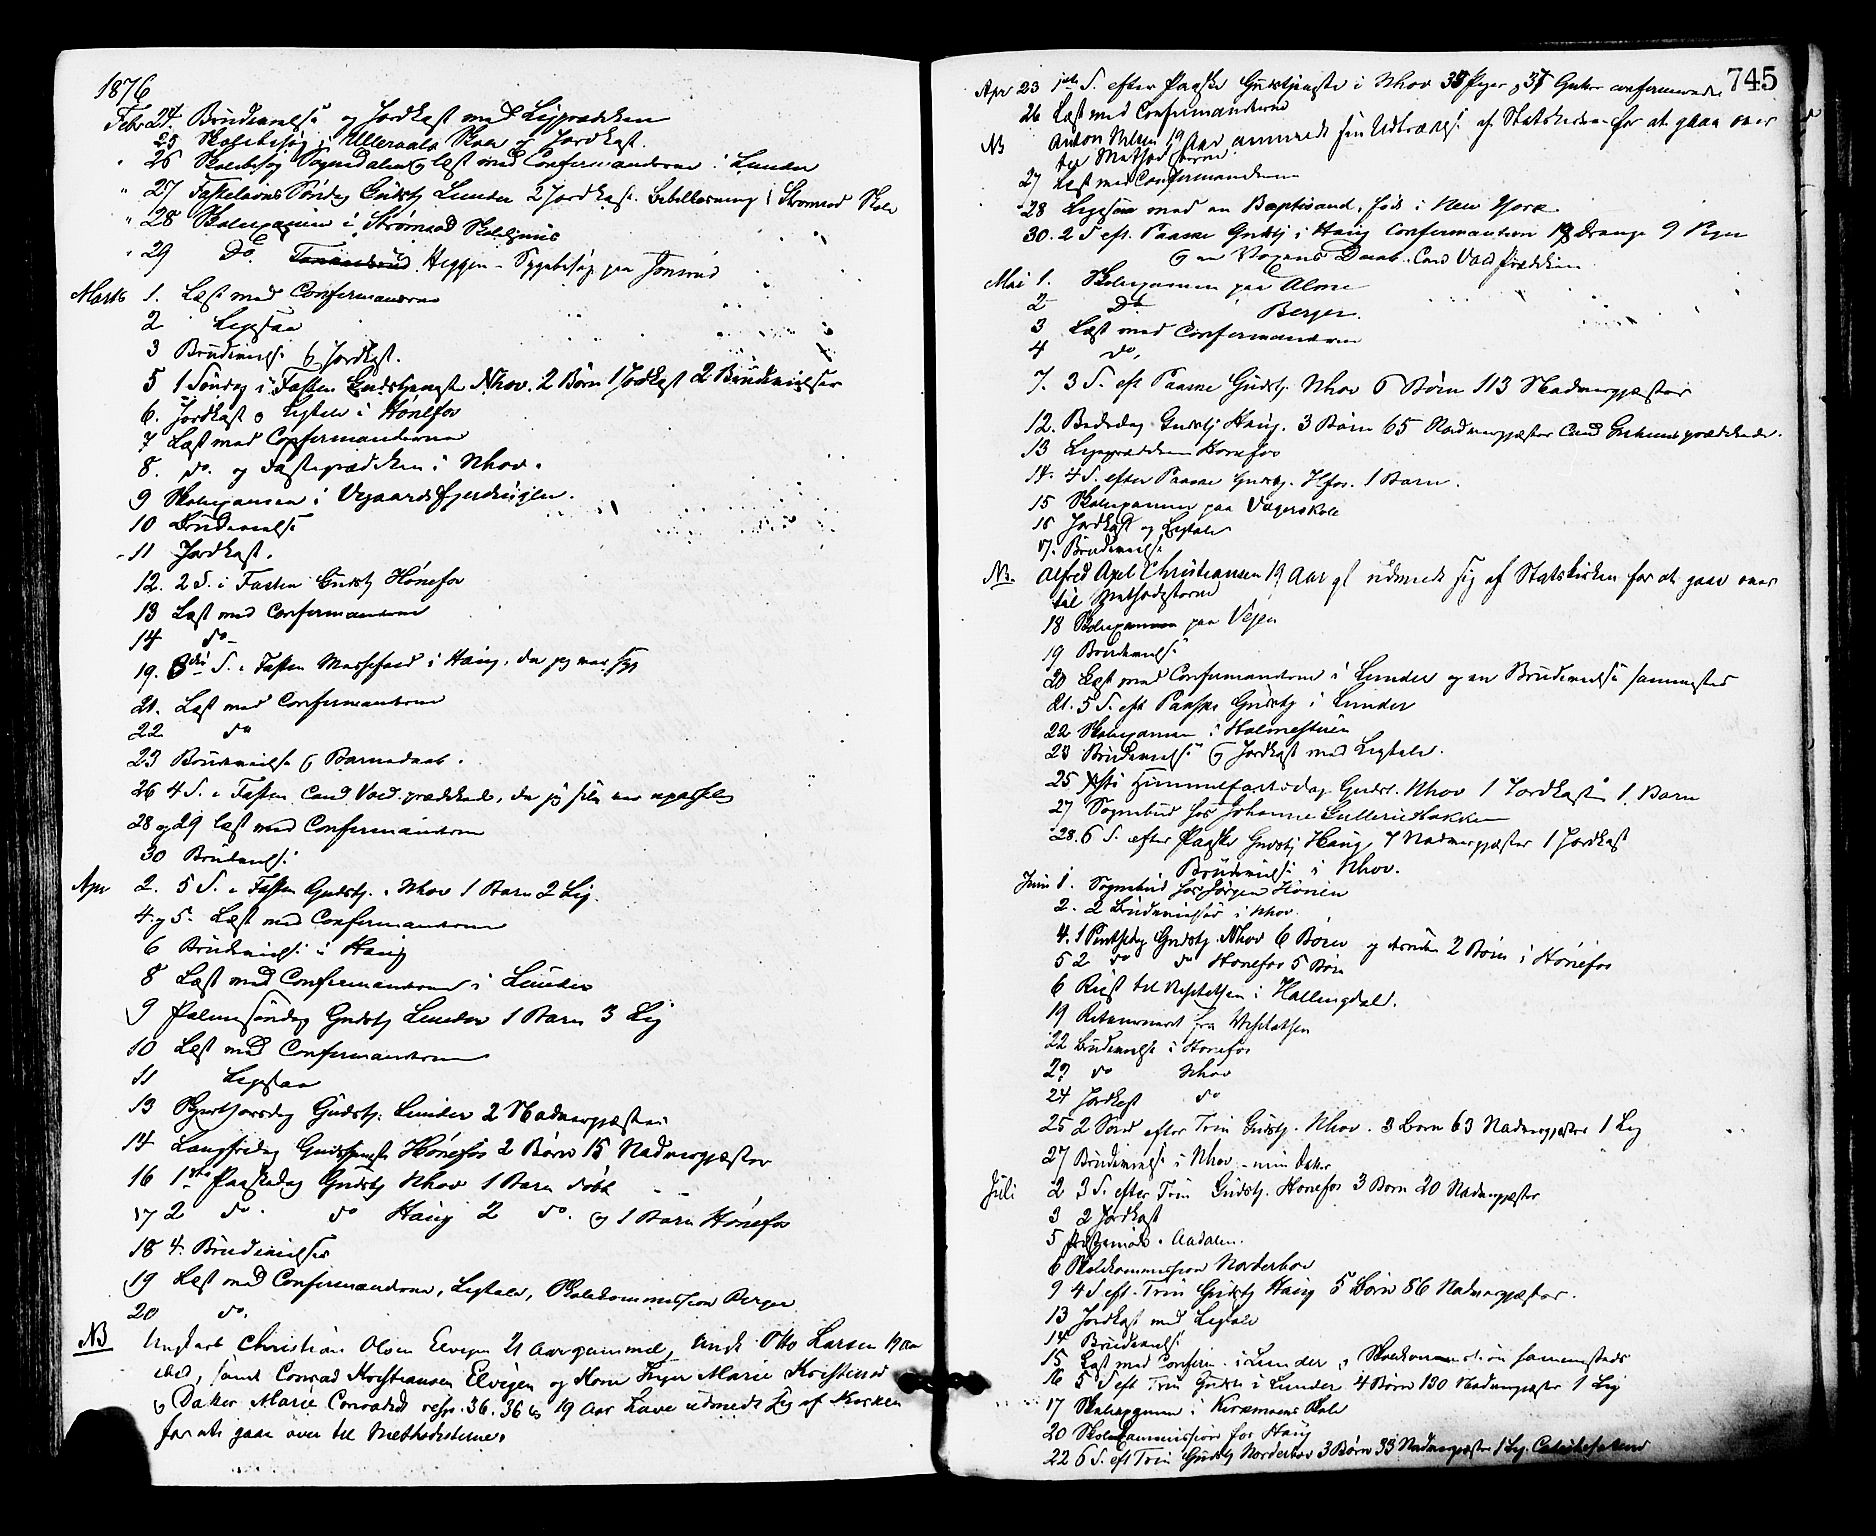 1876
Febr 24. Brudevielse og Jordkast med Ligprædiken
25 Skolebesøg i Ulleraals Skole og Jordkast.
" 26 Skolebesøg Sognedalen og læst med Confirmanderne i Lunder
" 27 Fastelavns Søndag Gudstj Lunder 2 Jordkast. Bibellæsning i Strømsod Skole
" 28 Skolexamen i Strømsod Skolehuus
" 29 Do. Heggen - Sygebesøg paa
Marts 1. Læst med Confirmanderne
2 Ligstaa
3 Brudevielse og Jordkast.
5 1 Søndag i Fasten Gudstjeneste Nhov. 2 Børn 1 Jordkast 2 Brudevielser
6. Jordkast og Ligtale i Hønefos
7 Læst med Confirmanderne
8. do. og Fasteprædiken i Nhov.
9 Skolexamen i Vegaardsfjerdingen.
10 Brudevielse
- 11 Jordkast.
12. 2 S. i Fasten Gudstj Hønefos
13 Læst med Confirmanderne
14 do
19. 3die S. i Fasten Messefald i Haug, da jeg var syg
21. Læst med Confirmanderne
22 do
23 Brudevielse og Barnedaab.
26 4 S. i Fasten Cand Vold prædikede, da jeg selv var upasselig
28 og 29 læst med Confirmanderne
30 Brudevielse
Apr 2. 5 S. i Fasten Gudstj. i Nhov 1 Barn 2 Lig.
4. og 5. Læst med Confirmanderne
6 Brudevielse i Haug
8 Læst med Confirmanderne i Lunder
9 Palmesøndag Gudstj Lunder 1 Barn 3 Lig
10 Læst med Confirmanderne
11 Ligstaa
13 Skjærthorsdag Gudstj. Lunder 2 Nadvergjæster
14 Langfredag Gudstjeneste Hønefos 2 Børn 15 Nadvergjæster
16 1ste Paaskedag Gudstj Nhov 1 Barn døbt
17 2 do. do Haug 2 do. og 1 Barn Hønefos
18 4. Brudevielser
19 Læst med Confirmanderne, Ligtale, Skolekommission Berger
20 do.
NB Ungkarl Christian Olsen Elvigen 21 Aar gammel, Ungk Otto Larsen 19 Aar
ibid, samt Conrad Kristiansen Elvigen og Kone Inger Marie Kristensd
og Datter Marie Conradsd resp. 36, 36 og 19 Aar have udmeldt sig af Kirken
for at gaae over til Methodisterne.
745
Apr 23 1ste S. efter Paaske Gudstjeneste i Nhov Piger og 37 Gutter confirmerede
26 Læst med Confirmanderne
NB Anton 19 Aar anmeldt sin Udtrædelse af Statskirken for at gaae over
til Methodisterne
27 Læst med Confirmanderne
28 Ligstaa med en Baptistand, født i New York
30. 2 S eft. Paaske Gudstj i Haug Confirmation 18 Drenge 9 Piger
og en Voxens Daab. Cand Vold prædiken
Mai 1. Skolexamen paa Alme
2 Do Berger.
3 Læst med Confirmanderne
4 do.
7. 3 S. eft Paaske Gudstj. Nhov 6 Børn 113 Nadvergjæster
12. Bededag Gudstj Haug. 3 Børn 65 Nadvergjæster Cand prædikede.
13 Ligprædiken Hønefos
14. 4 S. efter Paaske Gudstj. Hfos. 1 Barn.
15 Skolexamen paa Vagerskole
16 Jordkast og Ligtale
17. Brudevielse
NB. Alfred Axel Christiansen 19 Aar gl udmeldt sig af Statskirken for at gaae over
til Methodisterne
18 Skolexamen paa Vejen
19 Brudevielse
20 Læst med Confirmanderne i Lunder og en Brudevielse sammesteds
21. 5 S. eft Paaske Gudstj i Lunder
22 Skolexamen i Halmestuen
23 Brudevielse og Jordkast med Ligtale.
25 Himmelfartsdag Gudst. Nhov 1 Jordkast 1 Barn
27 Sognebud hos Johanne Gulleriehakken
28. 6 S. efter Paaske Gudstj Haug, 7 Nadvergjæster 1 Jordkast
Brudevielse i Nhov.
Juni 1. Sognebud hos Jørgen Hønen
2. 2 Brudevielser i Nhov.
4. 1 Pintsedag Gudstj. Nhov 6 Børn og desuden 2 Børn i Hønefos
5 2 do do Hønefos 5 Børn
6 Reist til Visitatsen i Hallingdal.
19 Returneret fra Visitatsen
22 Brudevielse i Hønefos
23 do Nhov
24 Jordkast do
25 2 Sønd efter Trin Gudstj. Nhov. 3 Børn 63 Nadvergjæster 1 Lig
27 Brudevielse i Nhov - min Datter
Juli 2 3 S. efter Trin Gudstj. Hønefos 3 Børn 20 Nadvergjæster
3 2 Jordkast
5 Præstemøde i Aadalen.
6 Skolekommission Norderhov
9 4 S eft. Trin Gudstj Haug 5 Børn 86 Nadvergjæster.
13 Jordkast med Ligtale
14 Brudevielse
15 Læst med Confirm. i Lunder og Skolkommission sammesteds
16 5 S eft Trin Gudst i Lunder 4 Børn 130 Nadvergjæster 1 Lig
17 Skolexamen i Kirkemoens Skole
20 Skolekommission for Haug
22 6 S. eft Trin Gudstj Norderhov 3 Børn 33 Nadvergjæster 1 Lig.